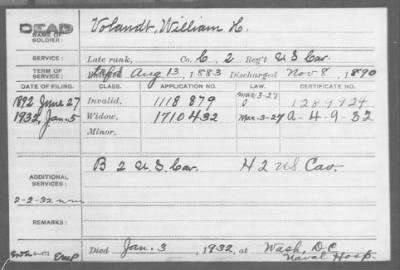 DEAD
NAME OF SOLDIER: Volandt, William H.
SERVICE: Late rank, Co. C, 2 Reg't U S Cav.
TERM OF SERVICE: Enlisted Aug 13, 1883 Discharged Nov 8, 1890
DATE OF FILING. CLASS. APPLICATION NO. LAW. CERTIFICATE NO.
Mar-3-27
1892 June 27 Invalid, 1118 879
1932, Jan. 5 Widow, 1710432 Mar-3-27 A-4-9-32
Minor,
ADDITIONAL SERVICES: B 2 U.S. Cav. H 2 US Cav.
2-2-32
REMARKS:
Died Jan. 3, 1932, at Wash, D.C.
Naval Hosp.